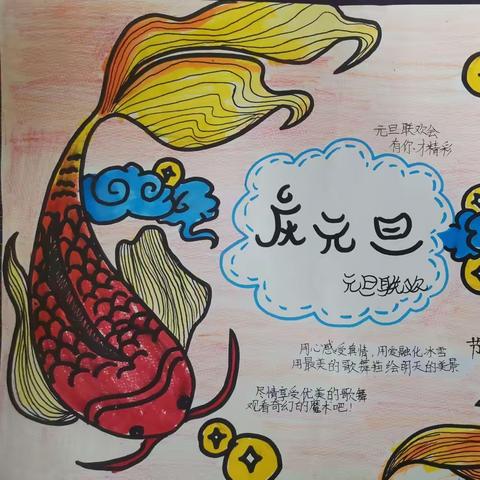 元旦联欢会
有你.才精彩
庆元旦
元旦联欢
用心感受真情,用爱融化冰雪
用最美的歌舞描绘明天的美景
尽情享受优美的歌舞
观看奇幻的魔术吧!
节